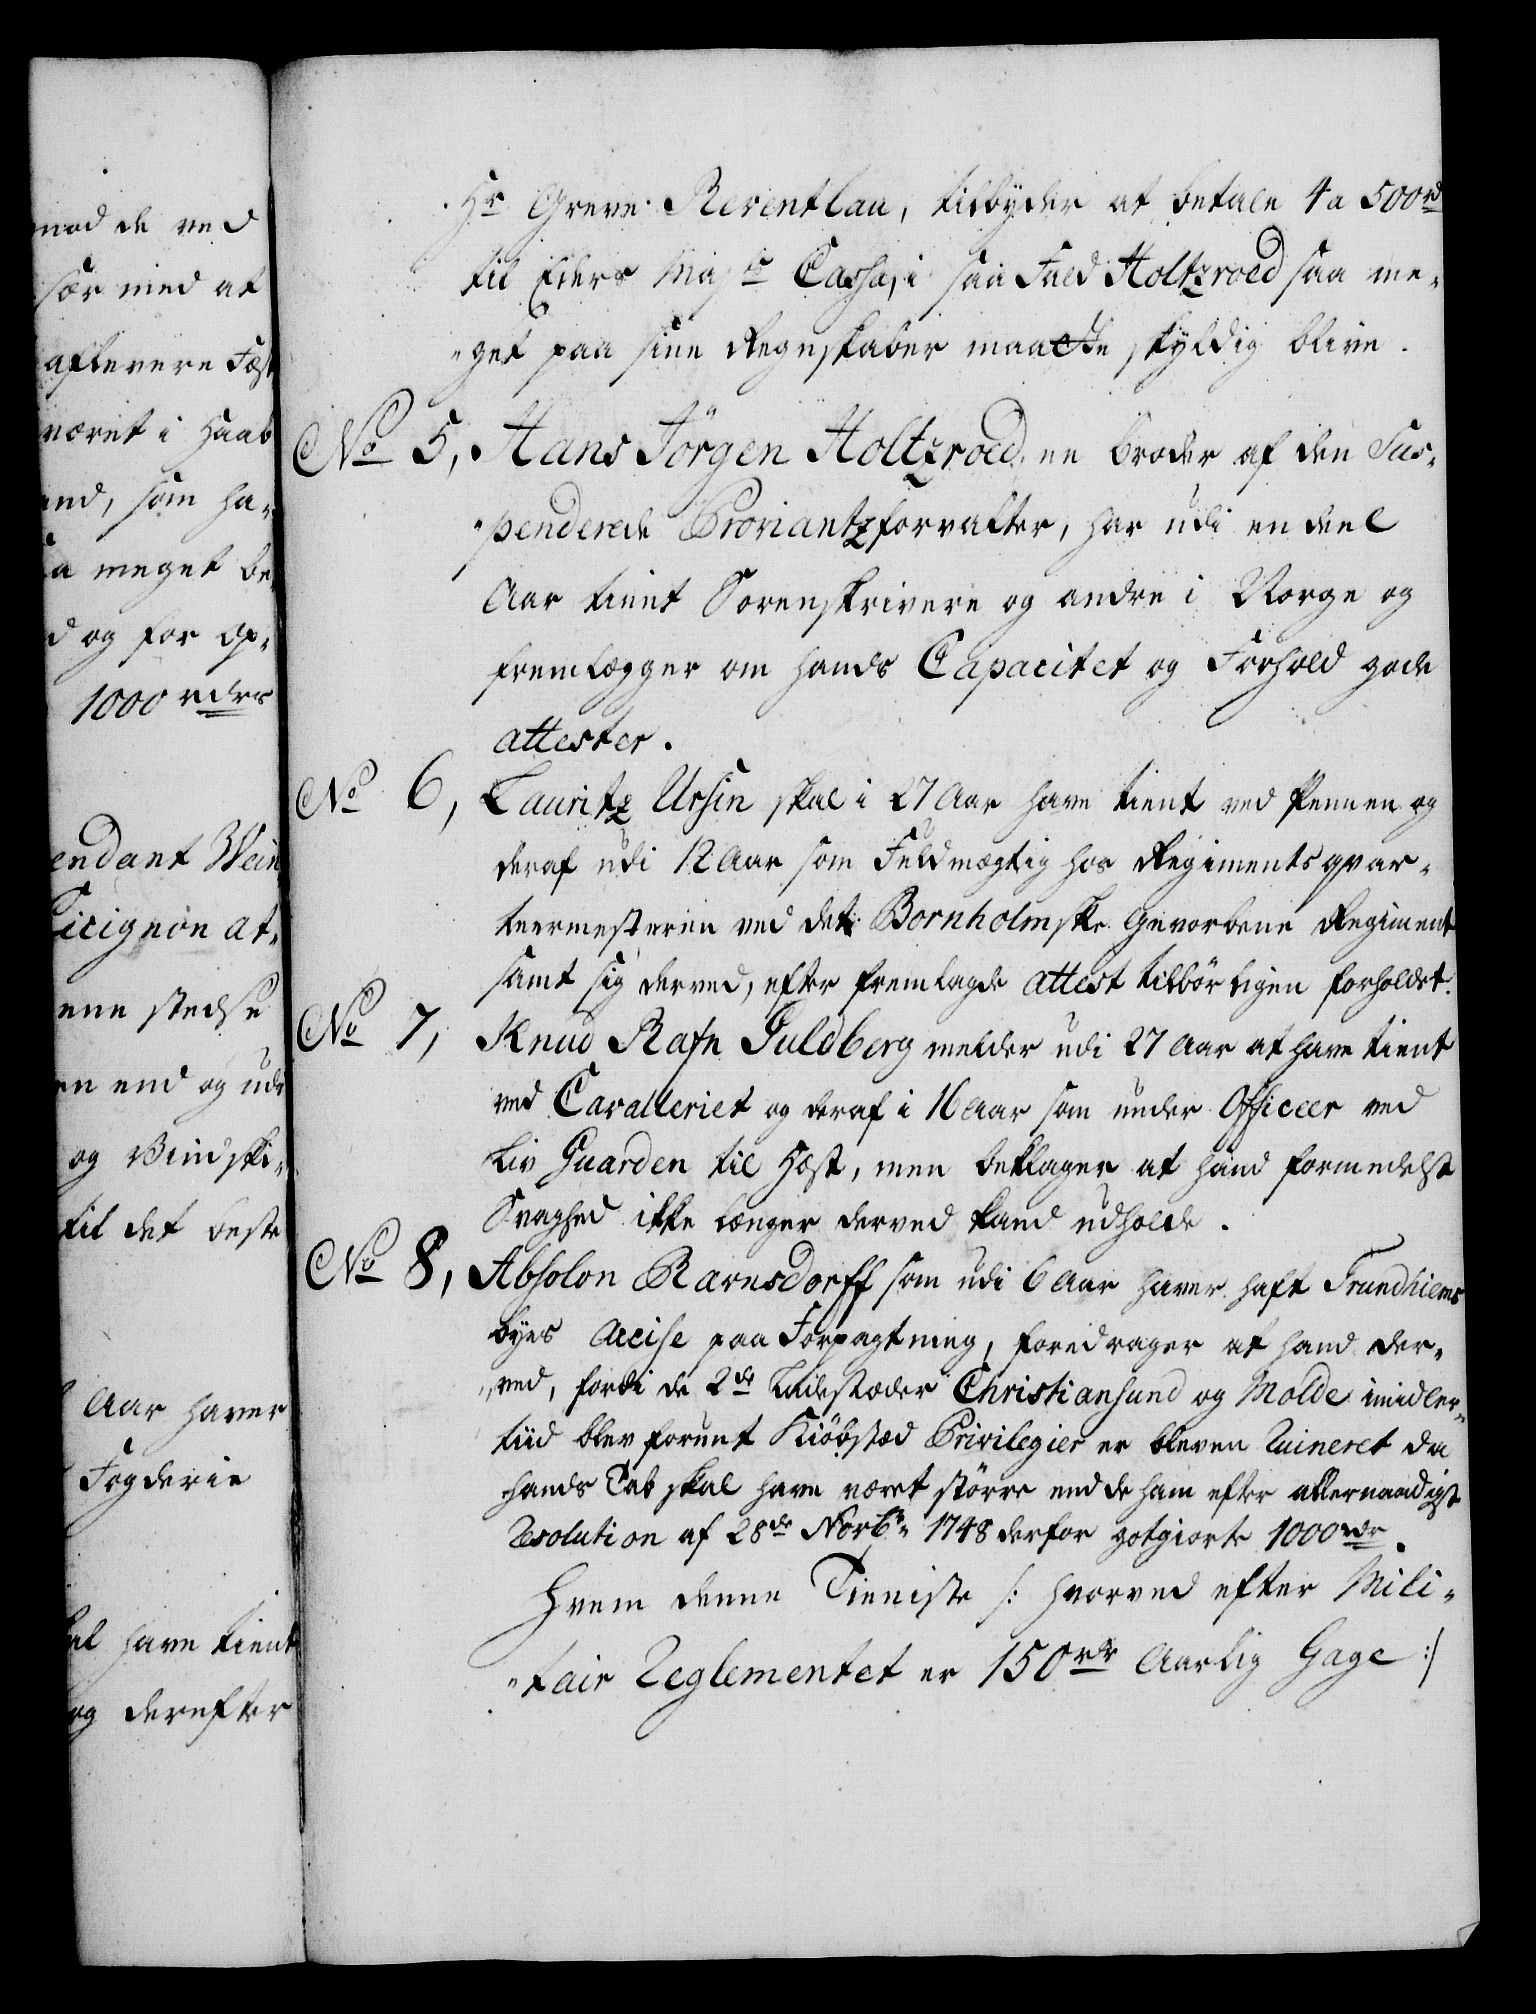 mod de ved
sær med at
aflevere Fæst
været i Haab
end, som ha-
saa meget be-
d og for op-
1000 rdrs
endant Wein
Cicignon at-
ene stedse
en end og udi
og Windski-
til det beste
Aar haver
Fogderie
hel have tient
og derefter
Hr Greve Reventlau, tilbyder at betale 4 a 500 rd
til Eders Majts Cassa, i saa Fald Holtzroed saa me-
-get paa sine Regnskaber maatte skyldig blive.
No 5, Hans Jörgen Holtzroed, en broder af den Sus-
-penderede Proviantzforvalter, har udi en deel
Aar tient Sorenskrivere og andre i Norge og
fremlægger om hands Capacitet og Forhold gode
attester.
No 6, Lauritz Ursin skal i 27 Aar have tient ved Pennen og
deraf udi 12 Aar som Fuldmægtig hos Regimentsqvar-
teermesteren ved det Bornholmske Gevorbene Regiment
samt sig derved, efter fremlagde attest tilbörligen forholdet.
No 7, Knud Rafn Guldberg melder udi 27 Aar at have tient
ved Cavalleriet og deraf i 16 Aar som under Officeer ved
Liv Guarden til Hest, men beklager at hand formedelst
Svaghed ikke længer derved kand udholde.
No 8, Absolon Rarnsdorff som udi 6 Aar haver haft Trundhiems
byes Accise paa Forpagtning, foredrager at hand der-
-ved, fordi de 2de Ladestæder Christiansund og Molde imidler-
tiid blev forunt Kiöbstæd Privilegier er bleven Ruineret da
hands Tab skal have været större end de ham efter allernaadigst
Resolution af 28de Novbr 1748 derfor gotgiorte 1000 rdr.
Hvem denne Tieniste /: hvorved efter Mili-
-tair Reglementet er 150 rdr Aarlig Gage :/